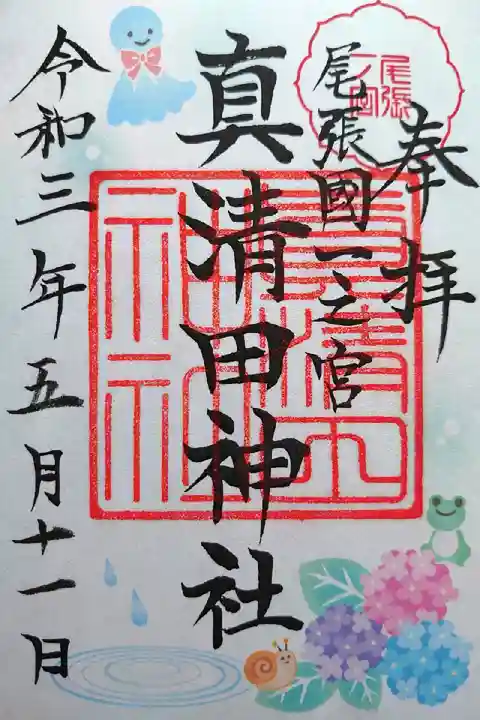 奉拝
尾張國一之宮
尾張
一ノ宮
真清田神社
真清田
神社
令和三年五月十一日